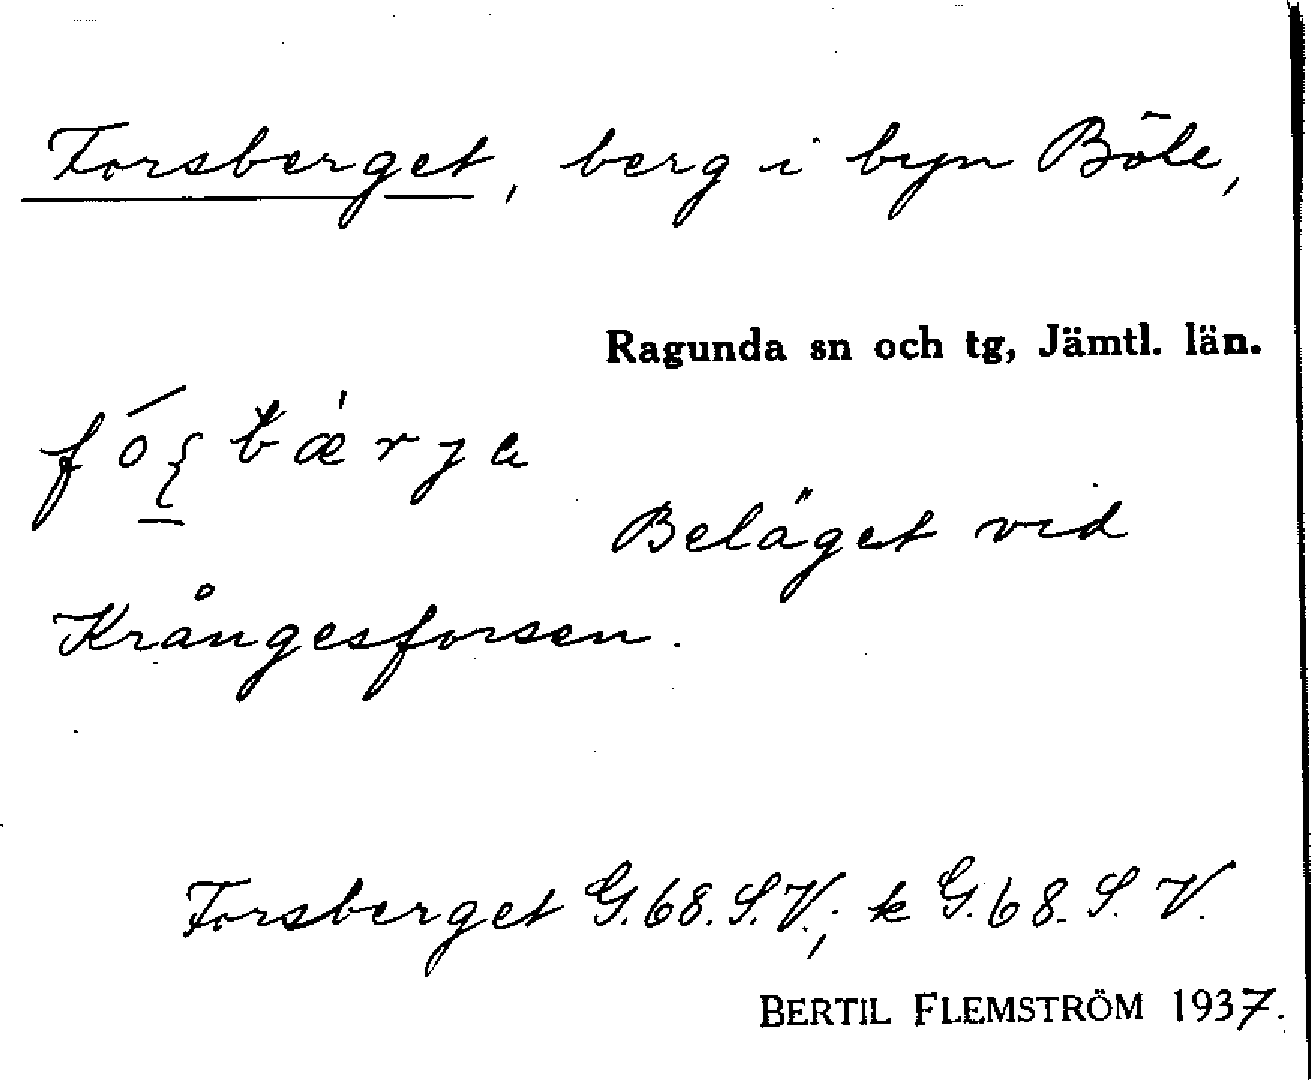 Forsberget, berg i byn Böle,
Ragunda sn och tg, Jämtl. län.
Beläget vid
Krångesforsen.
Forsberget G.68.S.V.; k G.68.S.V.
BERTIL FLEMSTRÖM 1937.